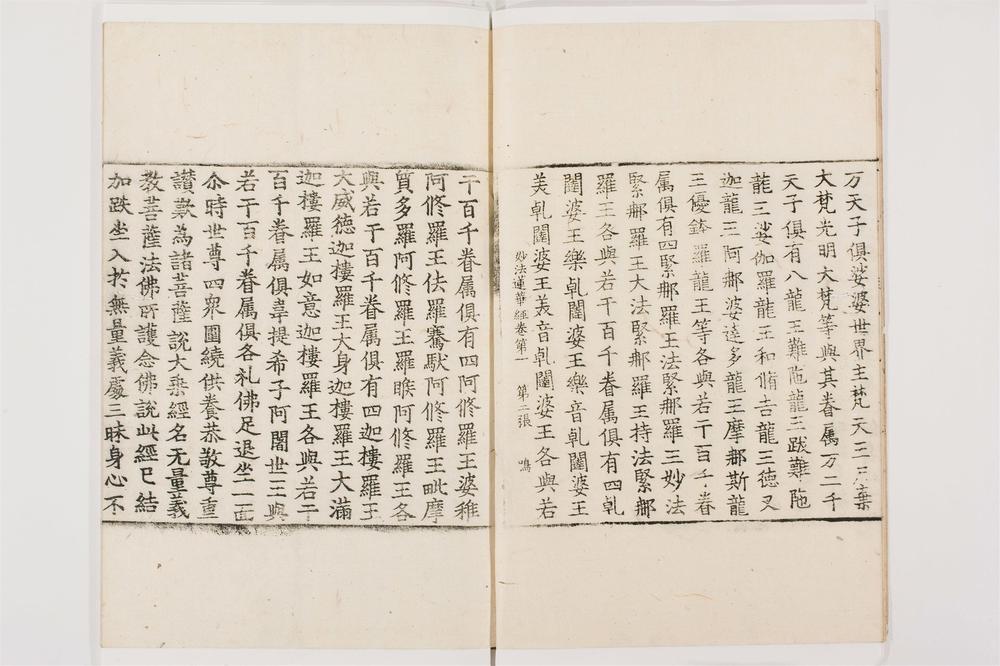 万天子俱娑婆世界主梵天王尸棄
大梵光明大梵等與其眷属万二千
天子俱有八龍王難陁龍王跋難陁
龍王娑伽羅龍王和脩吉龍王徳叉
迦龍王阿那婆達多龍王摩那斯龍
王優鉢羅龍王等各與若干百千眷
属俱有四緊那羅王法緊那羅王妙法
緊那羅王大法緊那羅王持法緊那
羅王各與若干百千眷属俱有四乹
闥婆王樂乹闥婆王樂音乹闥婆王
美乹闥婆王美音乹闥婆王各與若
妙法蓮華經卷第一 第二張 鳴
干百千眷属俱有四阿修羅王婆稚
阿修羅王佉羅騫馱阿修羅王毗摩
質多羅阿修羅王羅睺阿修羅王各
與若干百千眷属俱有四迦樓羅王
大威德迦樓羅王大身迦樓羅王大滿
迦樓羅王如意迦樓羅王各與若干
百千眷属俱韋提希子阿闍世王與
若干百千眷属俱各礼佛足退坐一面
尒時世尊四眾圍繞供養恭敬尊重
讃歎為諸菩薩說大乘經名无量義
教菩薩法佛所護念佛說此經已結
加趺坐入於無量義處三昧身心不